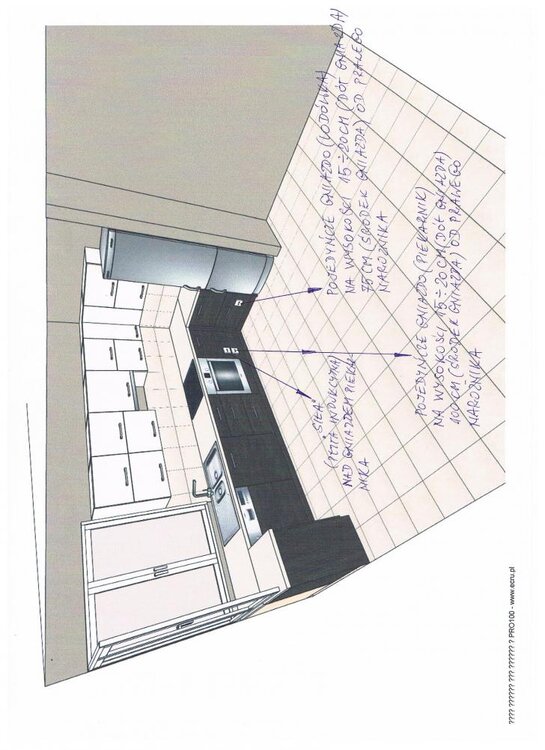 POJEDYŃCZE GNIAZDO (LODÓWKA)
NA WYSOKOŚCI 15÷20CM (DÓŁ GNIAZDA)
75CM (ŚRODEK GNIAZDA) OD PRAWEGO
NAROŻNIKA
"SIŁA"
(PŁYTA INDUKCYJNA)
NAD GNIAZDEM PIEKAR
NIKA
POJEDYŃCZE GNIAZDO (PIEKARNIK)
NA WYSOKOŚCI 15÷20CM (DÓŁ GNIAZDA)
100CM (ŚRODEK GNIAZDA) OD PRAWEGO
NAROŻNIKA
???? ?????? ??? ?????? ? PRO100 - www.ecru.pl